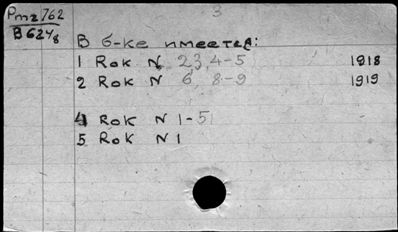 3
Pmz762
B6248
В б-ке имеется:
1 Rok N 2,3, 4-5 1918
2 Rok N 6, 8-9 1919
4 Rok N 1-5
5 Rok N 1